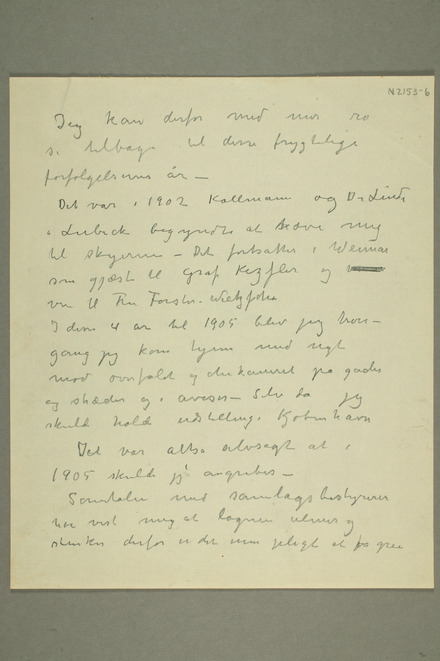 N 2153-6
Jeg kan derfor med mer ro
se tilbage til disse frygtelige
forfølgelsernes år —
Det var i 1902 Kollmann og Dr Linde
i Lubeck begyndte at hæve mig
til skyerne — Det fortsattes i Weimar
som gjæst til Graf Kezsler og
ven til Fru Forster-Nietzsche
I disse 4 år til 1905 blev jeg hver-
gang jeg kom hjem med rigt
mod overfaldt og chikaneret på gader
og stræder og i aviser — Selv da jeg
skulde holde udstilling i Kjøbenhavn
Det var altså at i
1905 skulde jeg angribes —
Samtalen med samlagsbestyrer
har vist mig at løgnen ulmer og
derfor er det mig at på